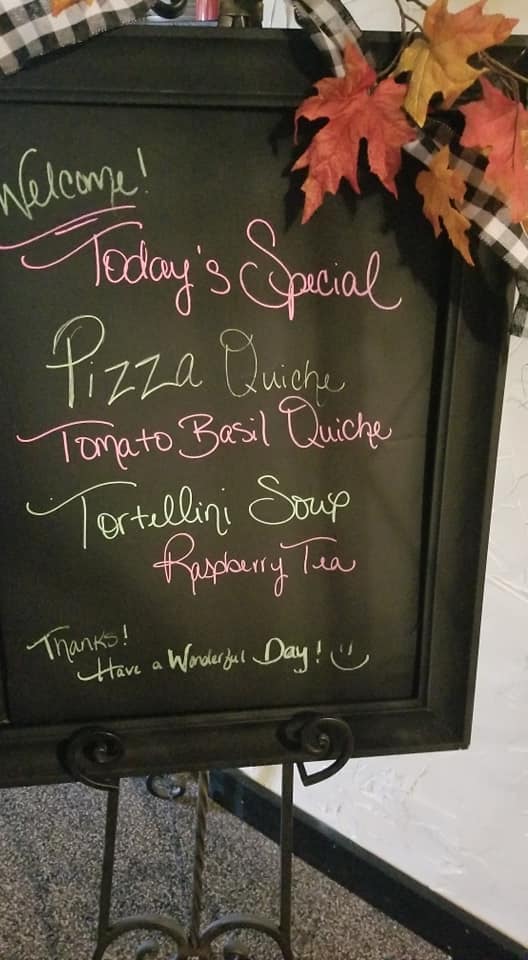 Welcome!
Today's Special
Pizza Quiche
Tomato Basil Quiche
Tortellini Soup
Raspberry Tea
Thanks!
Have a Wonderful Day!